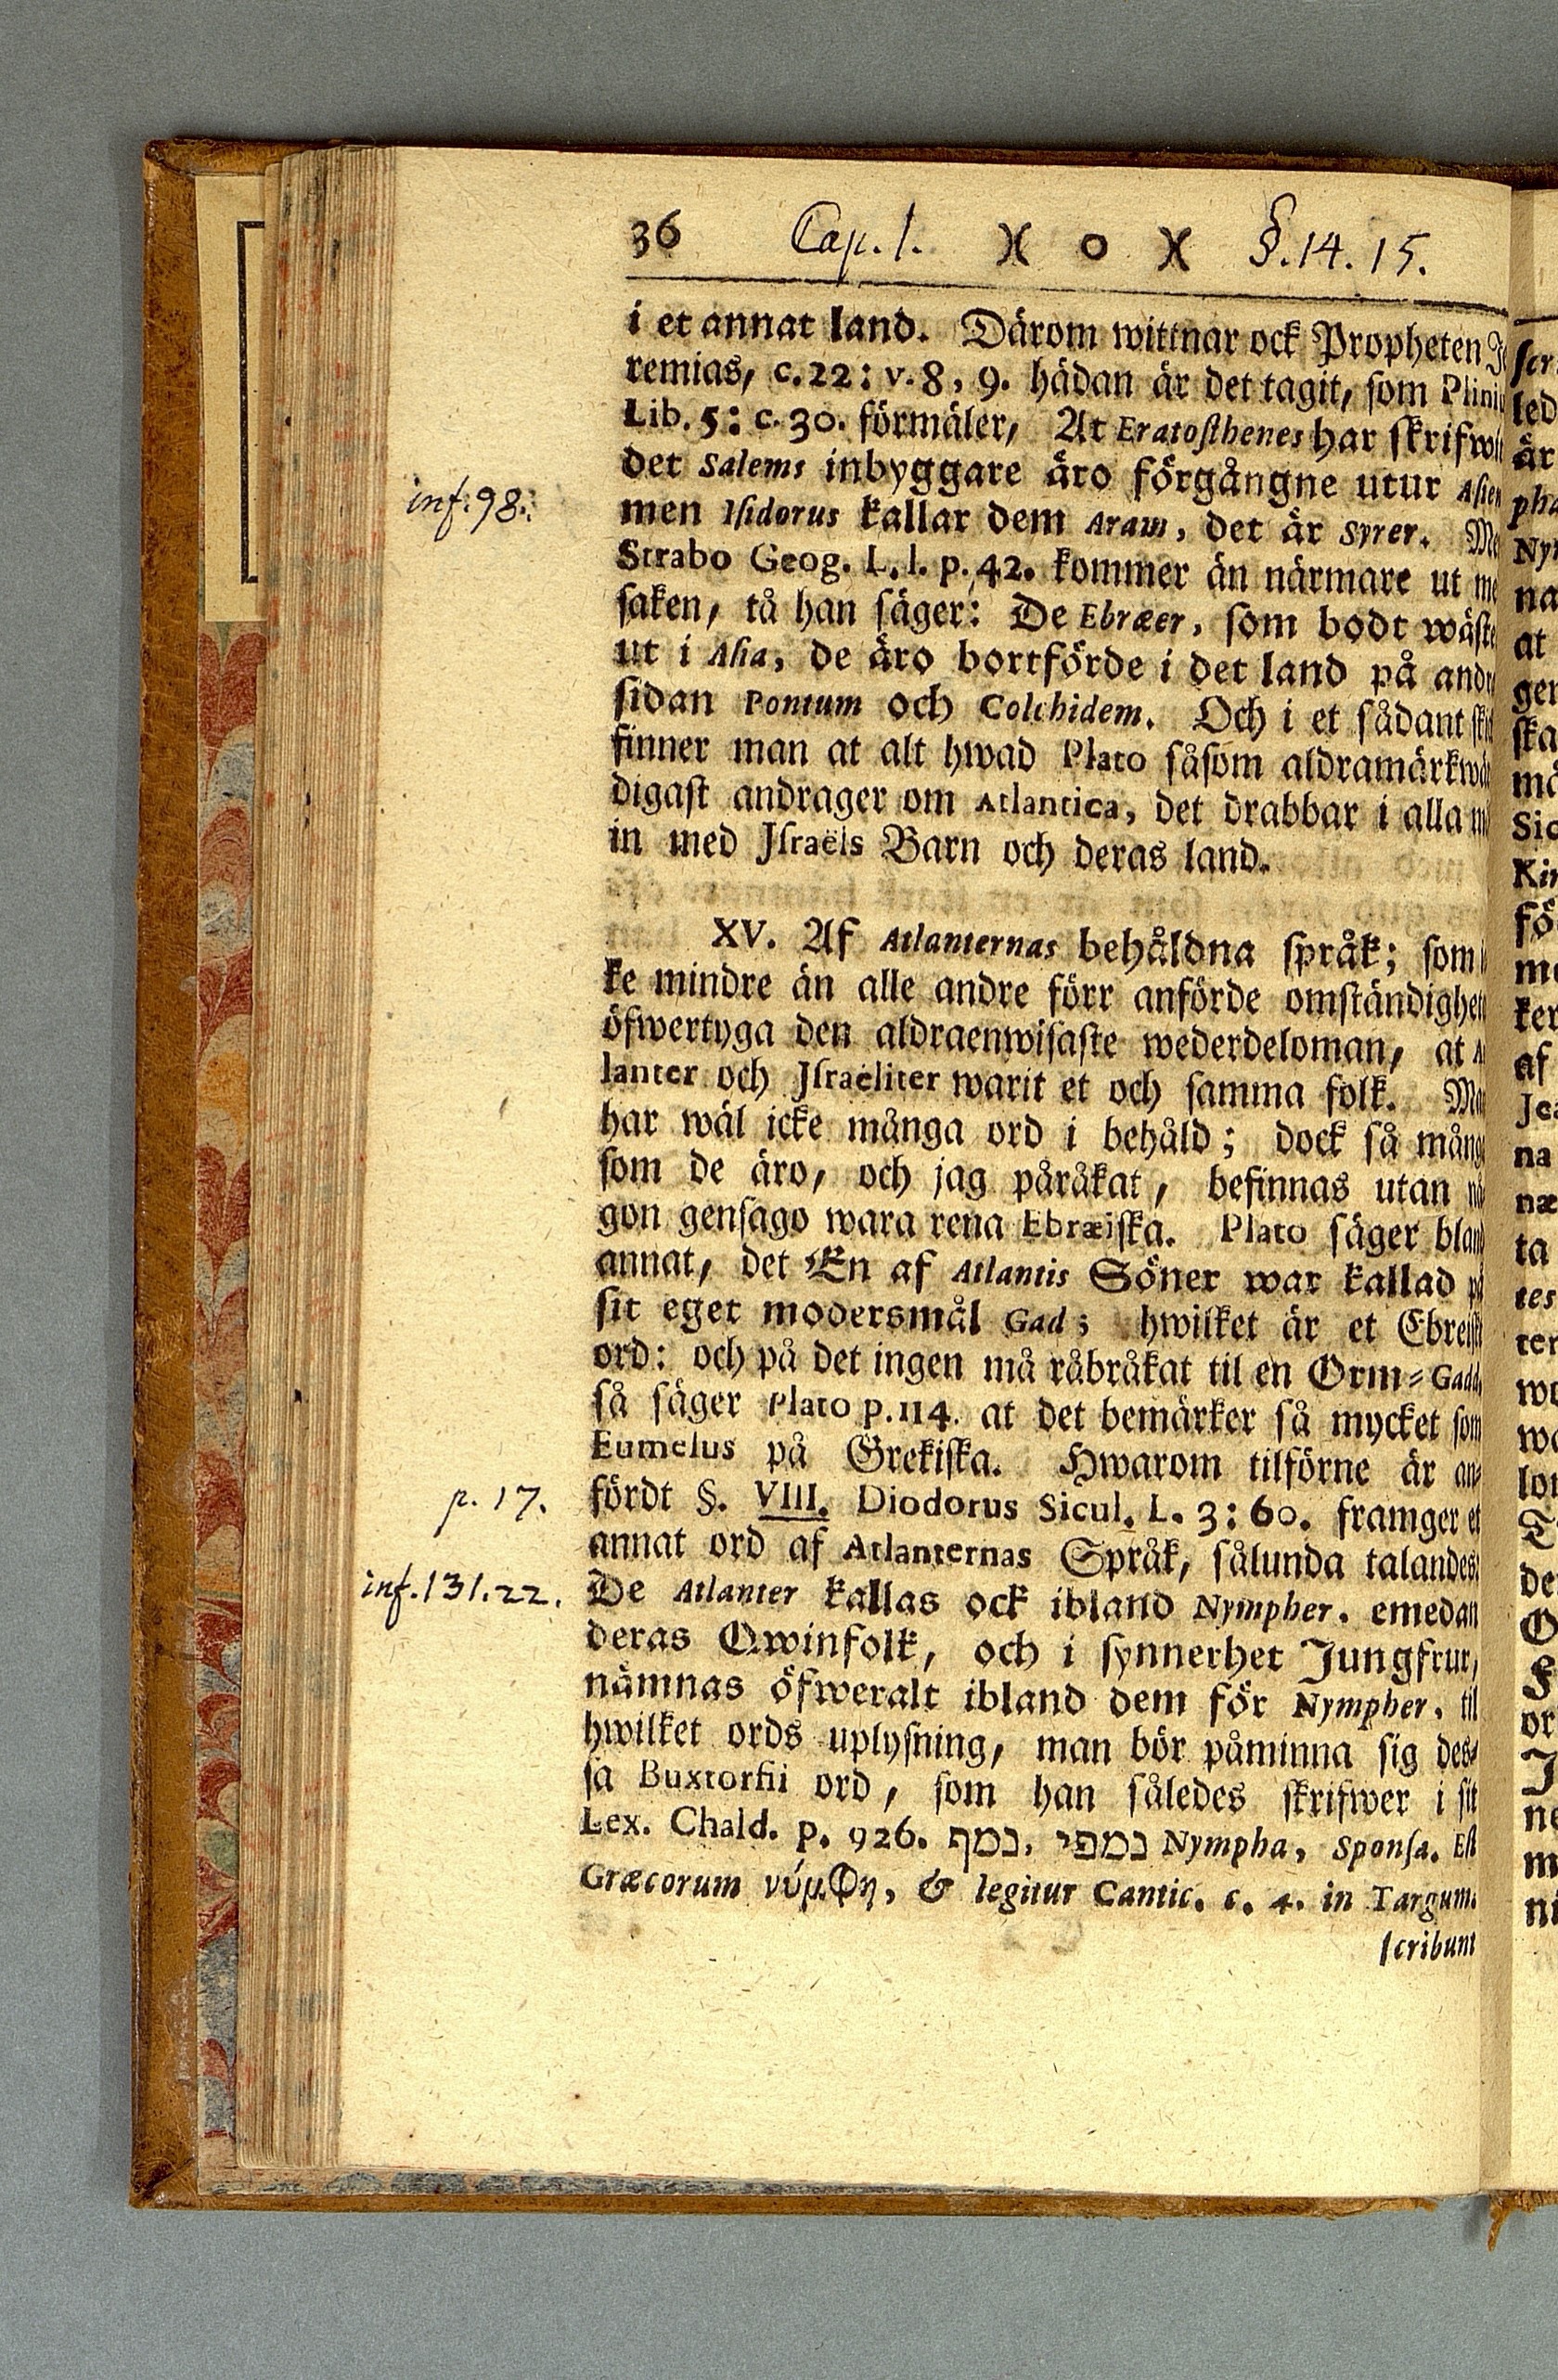 36 Cap. 1. )( o )( §. 14. 15.
i et annat land. Därom wittnar ock Propheten
remias, c. 22: v. 8, 9. hädan är det tagit, som
Lib. 5: c. 30. förmäler, At Eratosthenes har
det Salems inbyggare äro förgångne utur
inf: 98.
men Isidorus kallar dem Aram, det är Syrer.
Strabo Geog. L. l. p. 42. kommer än närmare ut
saken, tå han säger: De Ebræer, som bodt
ut i Asia, de äro bortförde i det land på
sidan Pontum och Colchidem. Och i et sådant
finner man at alt hwad Plato såsom
digast andrager om Atlantica, det drabbar i alla
in med Israëls Barn och deras land.
XV. Af Atlanternas behåldna språk; som
ke mindre än alle andre förr anförde
öfwertyga den aldraenwisaste wederdeloman, at
lanter och Israëliter warit et och samma folk.
har wäl icke många ord i behåld; dock så
som de äro, och jag påråkat, befinnas utan
gon gensago wara rena Ebræiska. Plato säger
annat, det En af Atlantis Söner war kallad
sit eget modersmål Gad; hwilket är et
ord: och på det ingen må råbråkat til en Orm-
så säger Plato p. 114. at det bemärker så mycket som
Eumelus på Grekiska. Hwarom tilförne är an-
p. 17.
fördt §. VIII. Diodorus Sicul. L. 3: 60. framger et
annat ord af Atlanternas Språk, sålunda talandes:
inf. 131. 22.
De Atlanter kallas ock ibland Nympher, emedan
deras Qwinfolk, och i synnerhet Jungfrur,
nämnas öfweralt ibland dem för Nympher, til
hwilket ords uplysning, man bör påminna sig des-
sa Buxtorfii ord, som han således skrifwer i sit
Lex. Chald. p. 926. נמף, נמפי Nympha, Sponsa. Est
Græcorum νύμφη, & legitur Cantic. c. 4. in Targum.
scribunt